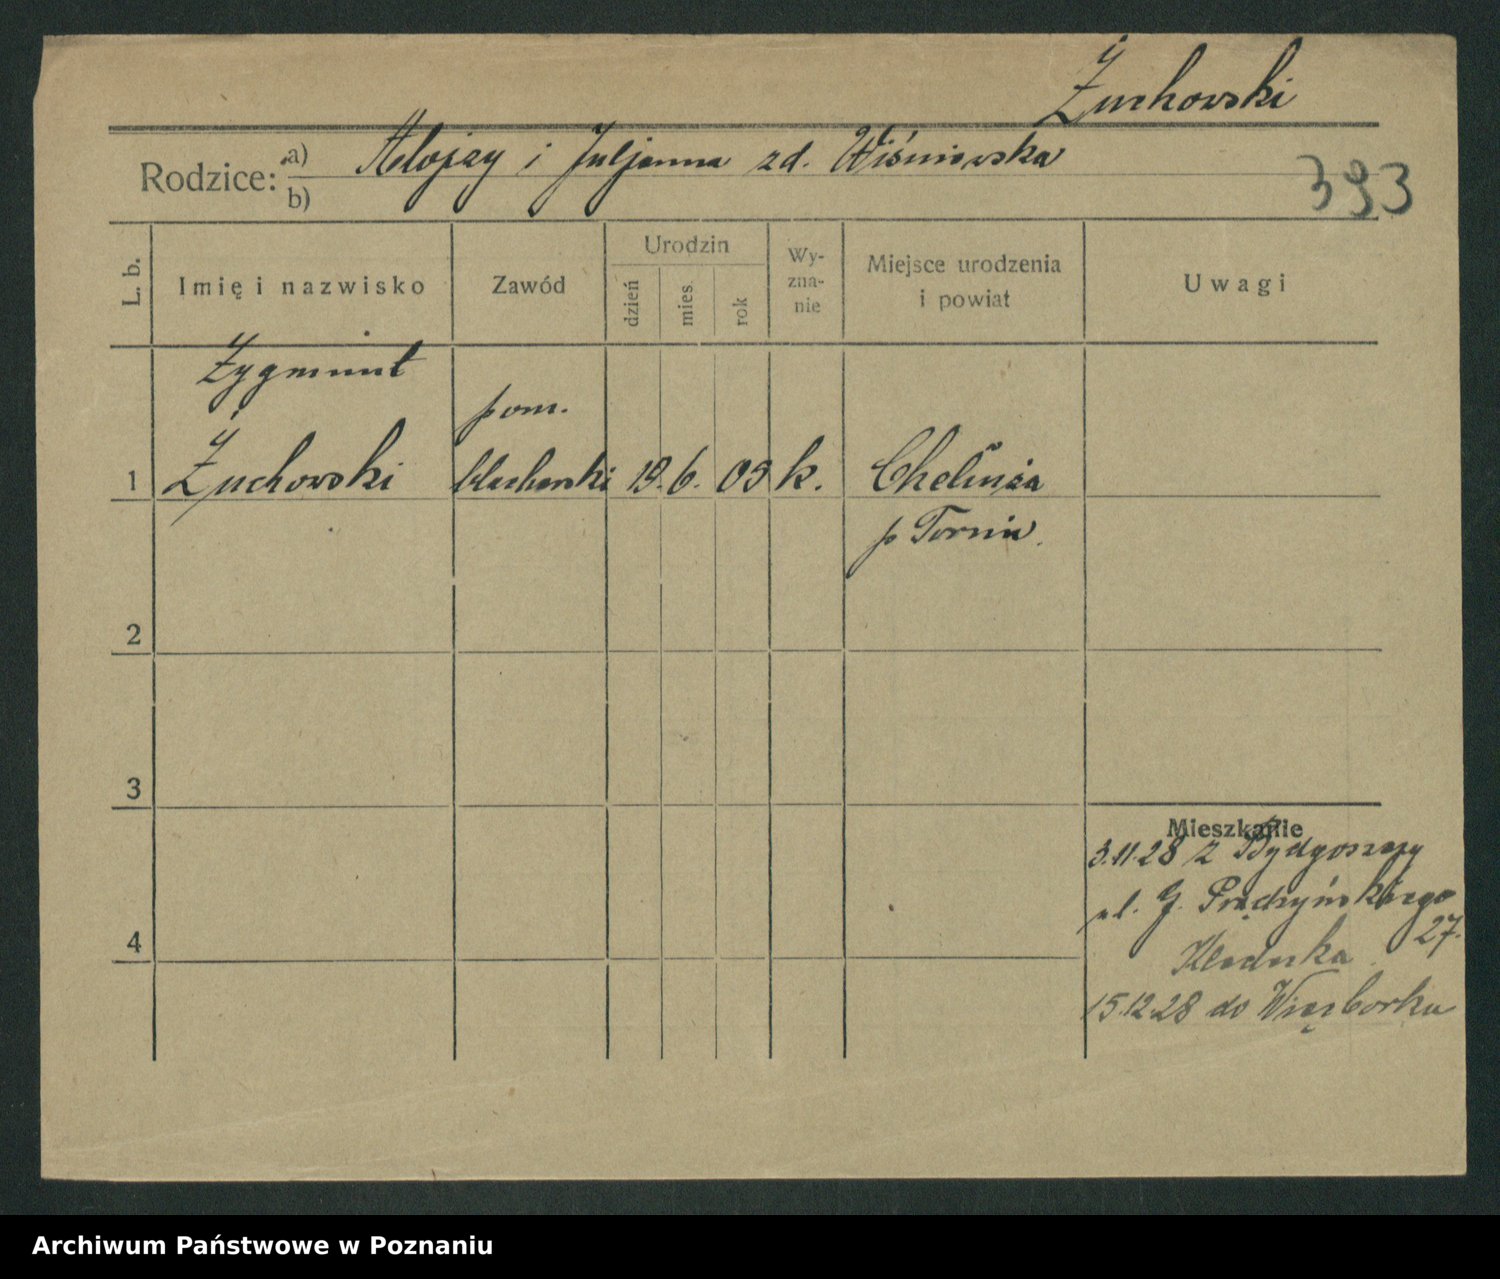 Żuchowski
Rodzice: a) Alojzy i Juljanna zd. Wiśniewska
b)
393
L. b.
Imię i nazwisko
Zawód
Urodzin
dzień
mies.
rok
Wy-
zna-
nie
Miejsce urodzenia
i powiat
Uwagi
Zygmunt
pom.
1 Żuchowski blacharski 19. 6. 09 k. Chełmża
p Toruń.
2
3
Mieszkanie
3.11.28 z Bydgoszczy
ul. J. Prądzyńskiego
27.
4
15.12.28 do Więcborku
Archiwum Państwowe w Poznaniu